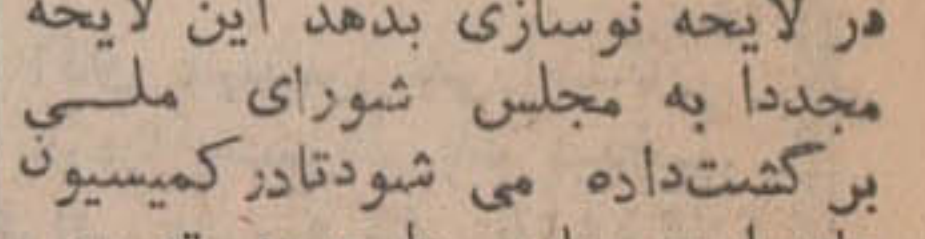 در لایحه نوسازی بدهد این لایحه
مجددا به مجلس شورای ملـــی
برگشت‌داده می شودتادر کمیسیون